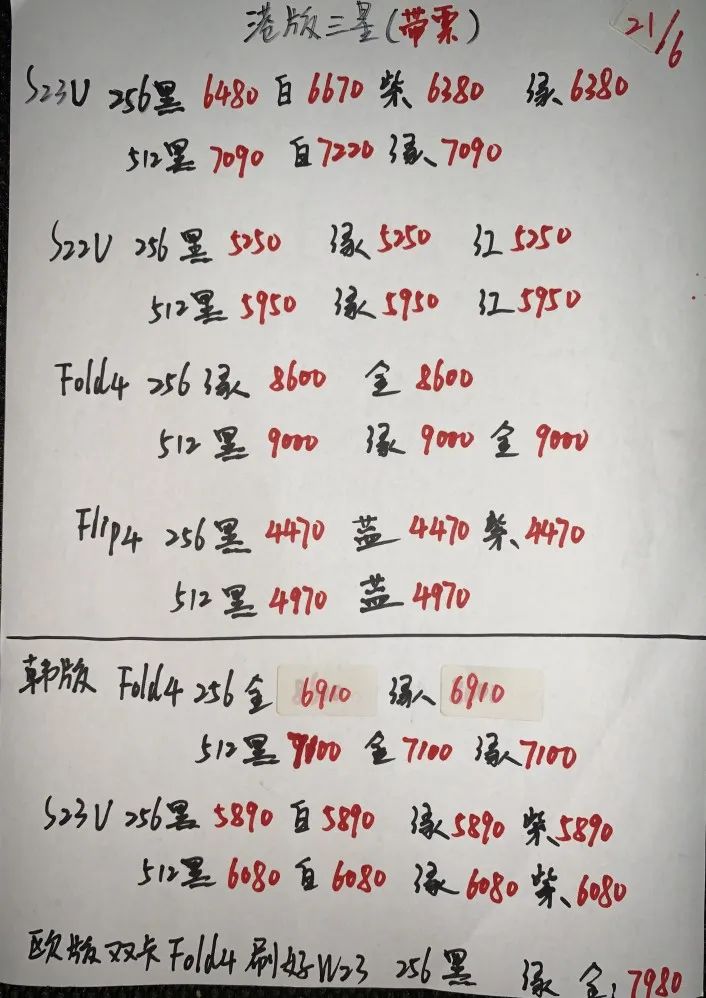 港版三星(带票) 21/6
S23U 256黑 6480 白 6670 紫 6380 绿 6380
512黑 7090 白 7220 绿 7090
S22U 256黑 5250 绿 5250 红 5250
512黑 5950 绿 5950 红 5950
Fold4 256 绿 8600 金 8600
512 黑 9000 绿 9000 金 9000
Flip4 256黑 4470 蓝 4470 紫 4470
512 黑 4970 蓝 4970
韩版 Fold4 256金 6910 绿 6910
512黑 7100 金 7100 绿 7100
S23U 256黑 5890 白 5890 绿 5890 紫 5890
512黑 6080 白 6080 绿 6080 紫 6080
欧版双卡Fold4刷好W23 256 黑 绿 金: 7980